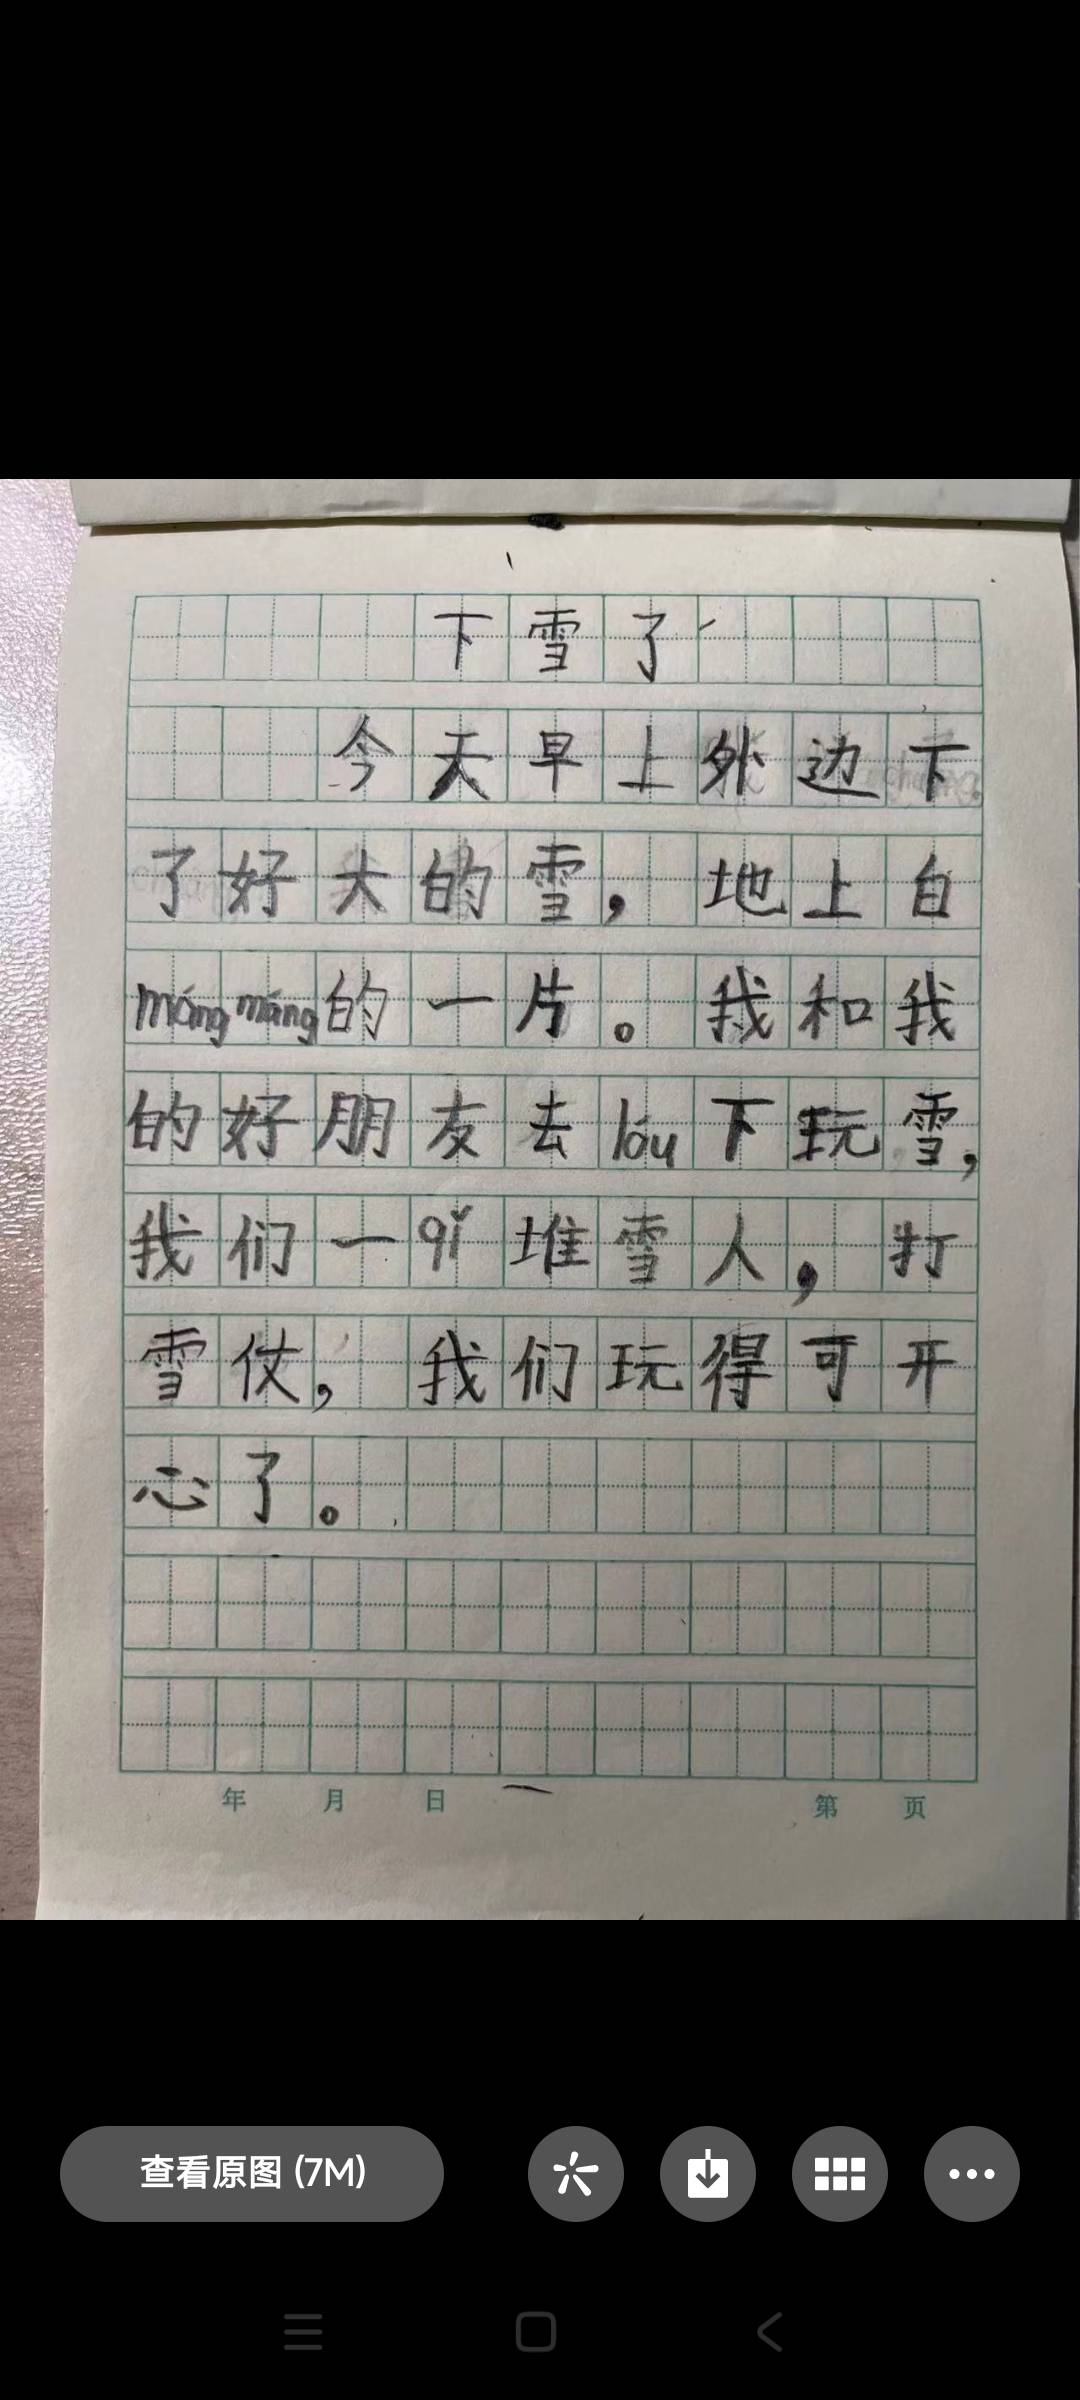 下雪了
今天早上外边下
了好大的雪，地上白
mángmáng的一片。我和我
的好朋友去lóu下玩雪，
我们一qǐ堆雪人，打
雪仗，我们玩得可开
心了。
年 月 日 第 页
查看原图 (7M)